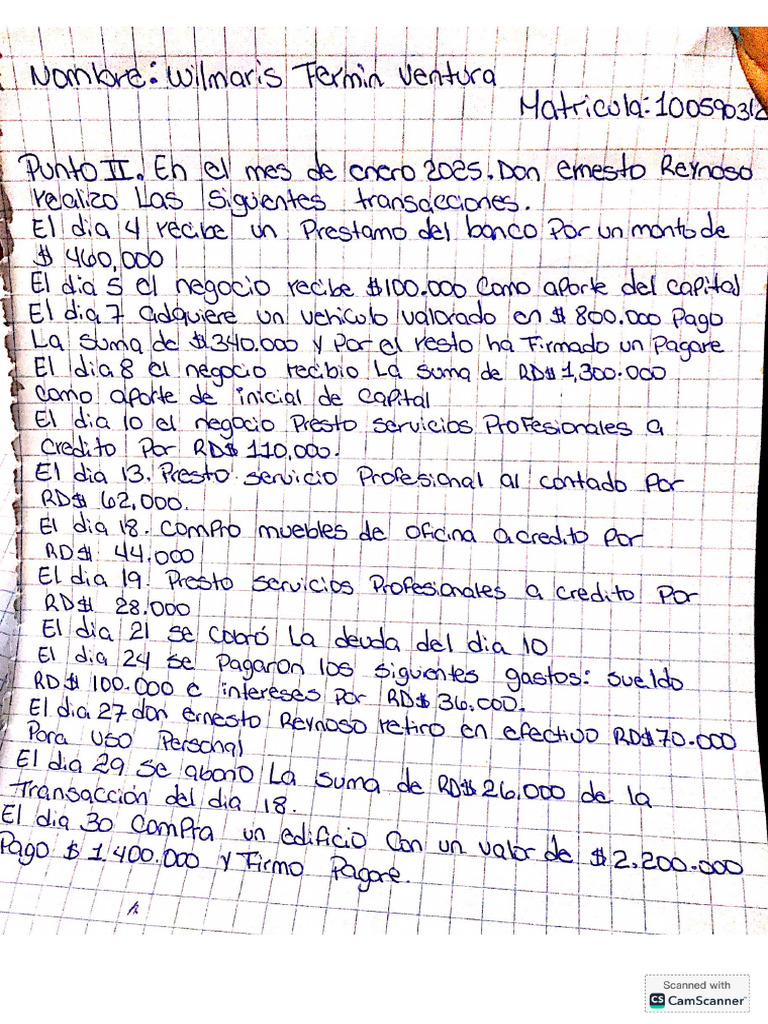 Nombre: Wilmaris Termin Ventura
Matricula: 10059031
Punto II. En el mes de enero 2025. Don ernesto Reynoso
realizo Las siguientes transacciones.
El dia 4 recibe un Prestamo del banco Por un monto de
$ 460,000
El dia 5 el negocio recibe $100.000 Como aporte del capital
El dia 7 adquiere un vehiculo valorado en $ 800.000 Pago
La suma de $340.000 y Por el resto ha Firmado un Pagare
El dia 8 el negocio recibio La suma de RD$ 1,300.000
como aporte de inicial de capital
El dia 10 el negocio Presto servicios Profesionales a
credito Por RD$ 110,000.
El dia 13. Presto servicio Profesional al contado Por
RD$ 62,000.
El dia 18. Compro muebles de oficina a credito Por
RD$ 44.000
El dia 19. Presto servicios Profesionales a credito Por
RD$ 28.000
El dia 21 se cobró La deuda del dia 10
El dia 24 se Pagaron los siguientes gastos: sueldo
RD$ 100.000 e intereses Por RD$ 36,000.
El dia 27 don ernesto Reynoso retiro en efectivo RD$70.000
Para uso Personal
El dia 29 se abono La suma de RD$ 26,000 de la
Transacción del dia 18.
El dia 30 Compra un edificio Con un valor de $ 2.200.000
Pago $ 1.400.000 y Firmo Pagare.
Scanned with
CS CamScanner